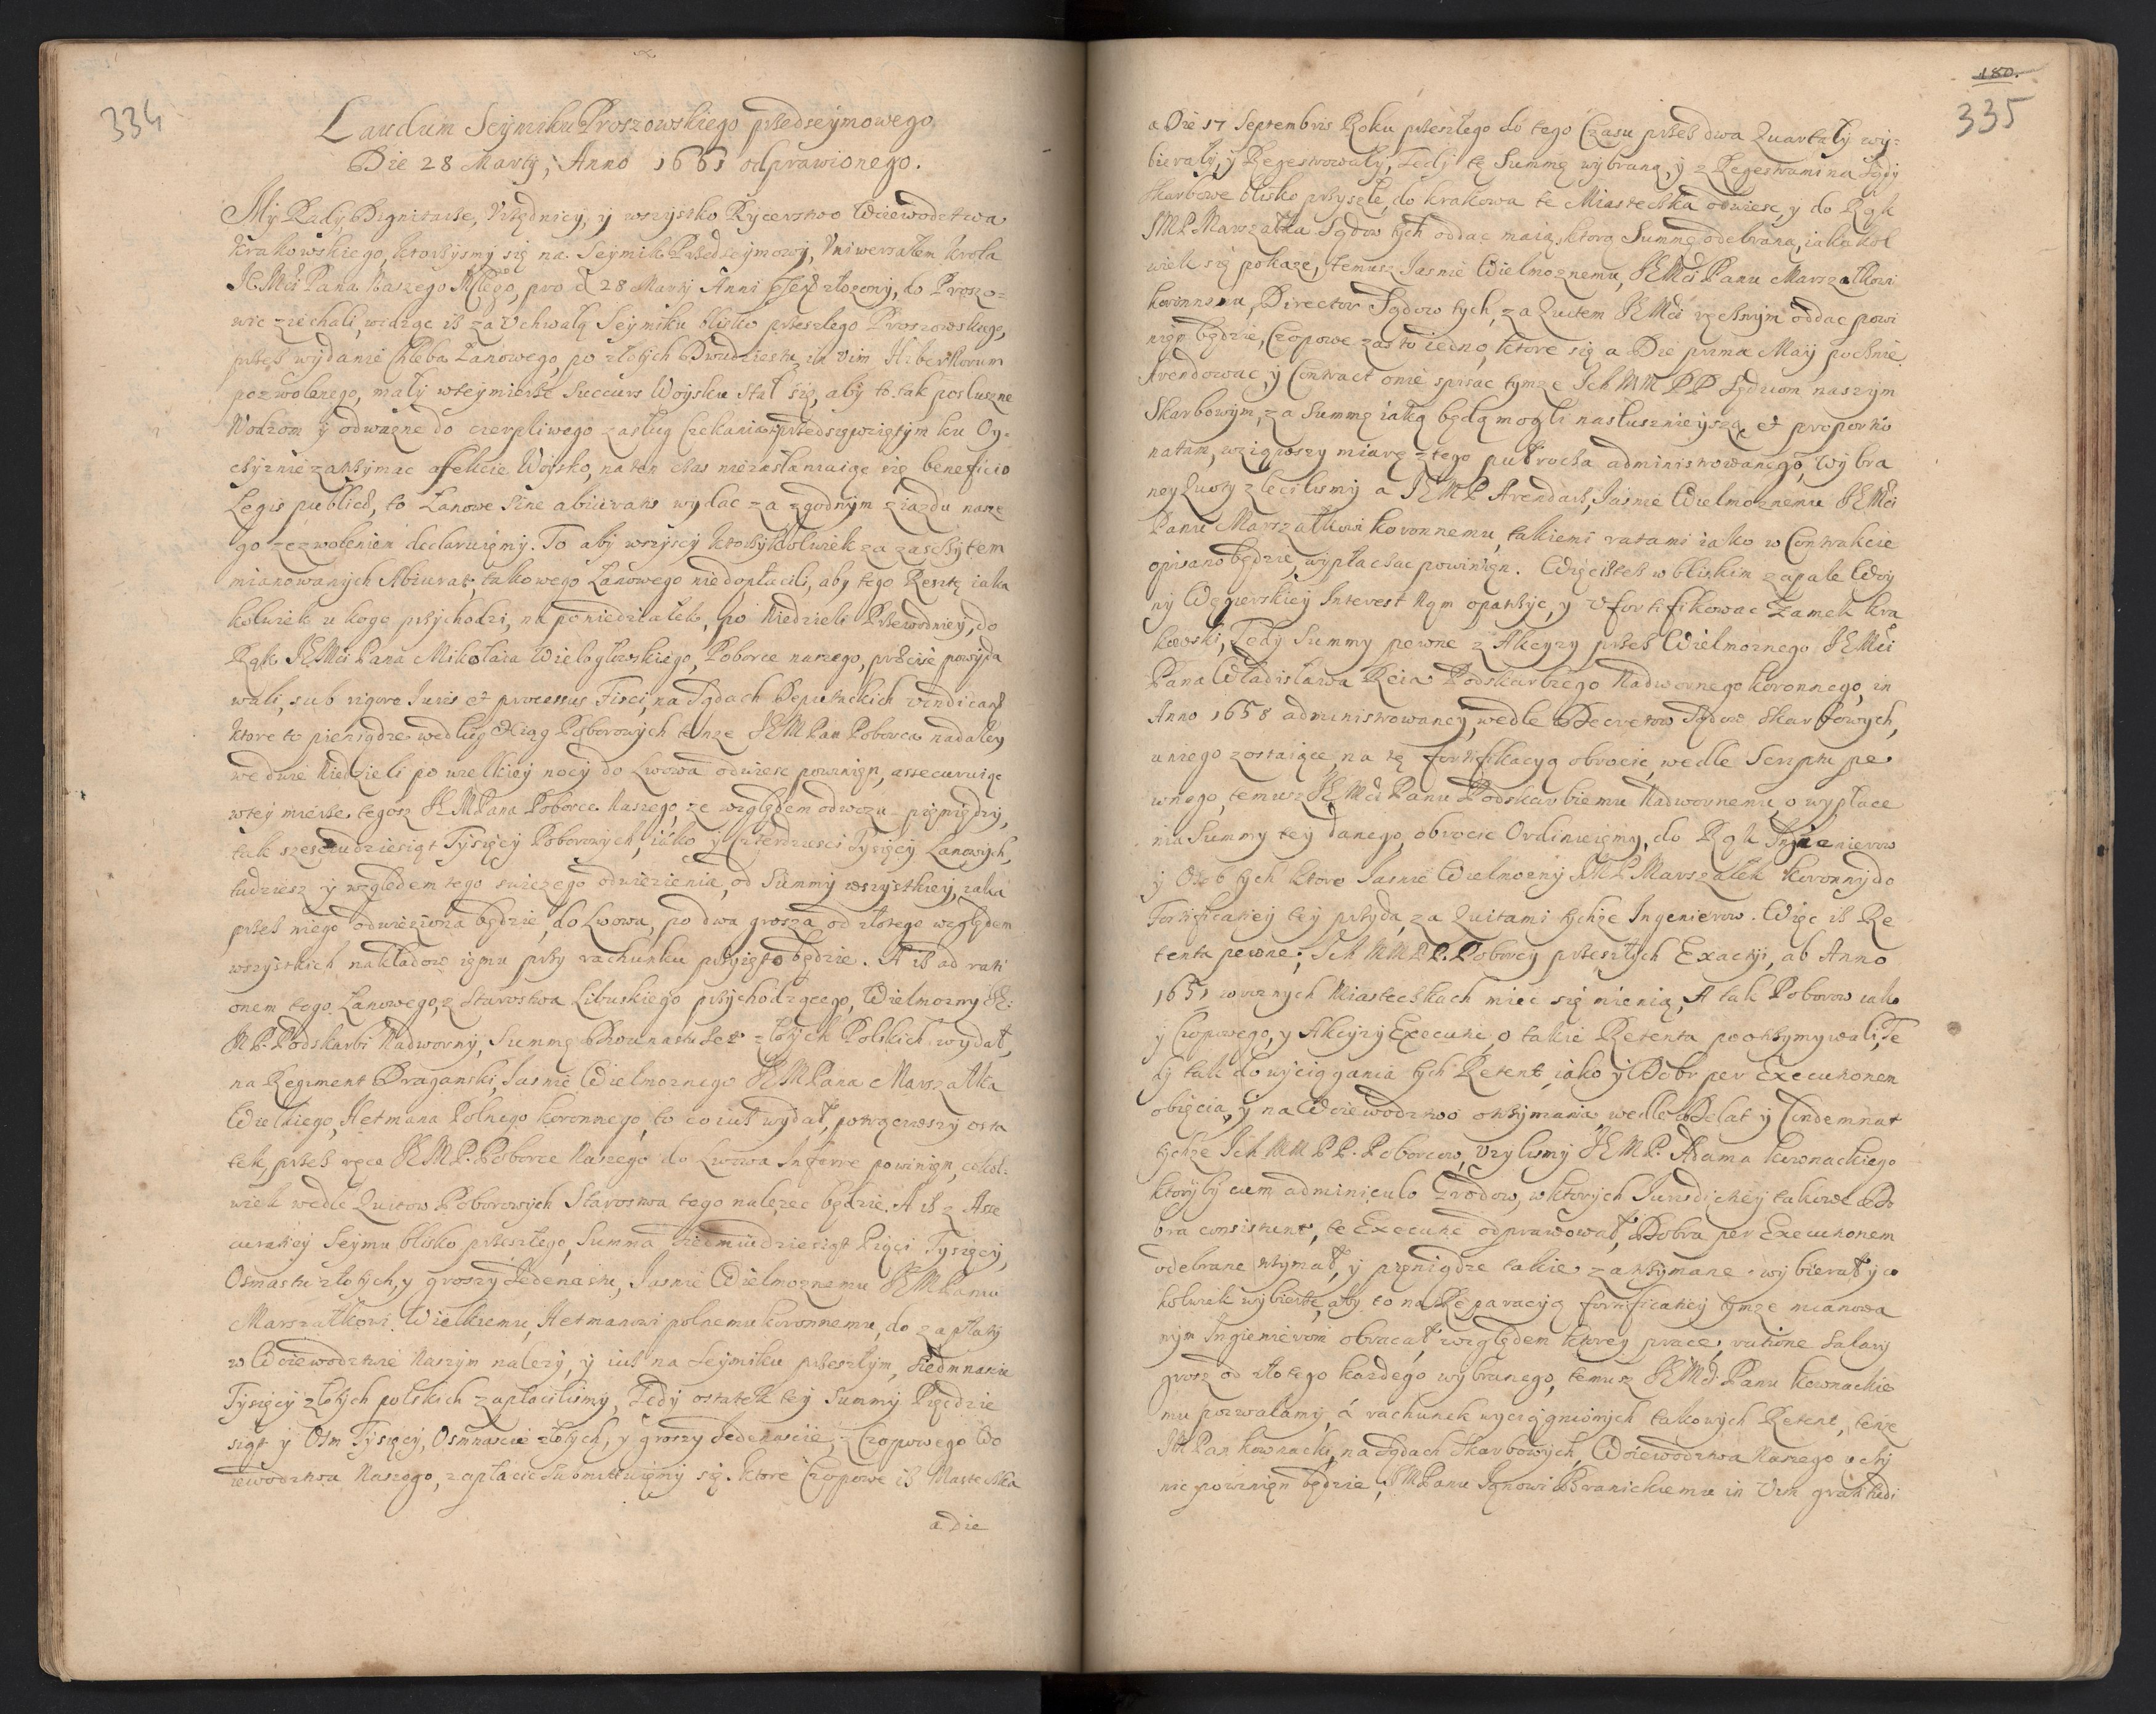 334
Laudum Seymiku Proszowskiego przedseymowego
Die 28 Martij, Anno 1661 odprawionego.
My Rady, Dignitarze, Vrzędnicy, y wszystko Rycerstwo Woiewodztwa
Krakowskiego, ktorzysmy się na Seymik Przedseymowy, Vniwersałem Krola
JEMci Pana Naszego Młgo, pro d 28 Martij Anni złozony, do Proszo=
wic ziechali, widząc isz za Vchwałą Seymiku blisko przeszłego Proszowskiego,
przez wydanie Chleba Łanowego, po złotych Dwudziestu in vim Hibernorum
pozwolonego, mały wteymierze Succurs Woysku stał się, aby to tak posłuszne
Wodzom y odwazne do cierpliwego zasług czekania przedsięwziętym ku Oy=
czyznie zatrzymac afekcie Woysko, na ten czas niezasłaniaiąc się beneficio
Legis publicae, to Łanowe sine abiuratis wydac za zgodnym ziazdu nasze
go zezwoleniem declaruięmy. To aby wszyscy ktorzykolwiek za zaszczytem
mianowanych Abiurat, takowego Łanowego niedopłacili, aby tego Resztę iaka
kolwiek u kogo przychodzi, na poniedziałek, po Niedzieli Przewodniey, do
Rąk JEMci Pana Mikołaia Wielogłowskiego, Poborce naszego,
wali, sub rigore Iuris et processus Fisci, na Sądach Deputackich vindicand
ktore to pieniądze według Xiąg Poborowych tenze JEMPan Poborca nadaley
we dwie Niedzieli po wielkiey nocy do Lwowa odwiesc powinięn, assecuruiąc
wtey mierze tegosz JEMPana Poborce Naszego, ze względem odwozu pięniędzy,
tak szesciudziesiąt Tysięcy Poborowych, iako y czterdziesci Tysięcy Łanowych,
tudziesz y względem tego swiezego odwiezienia, od Summy wszystkiey, iaka
przez niego odwieziona będzie, do Lwowa, po dwa grosza od złotego względem
wszystkich nakładow iemu przy rachunku przyięto będzie. A isz ad rati
onem tego Łanowego, z Starostwa Libuskiego przychodzącego, Wielmozny JE:
MP. Podskarbi Nadworny, Summę Dwunastu Set złotych Polskich wydał,
na Regiment Draganski, Jasnie Wielmoznego JEMPana Marszałka
Wielkiego, Hetmana Polnego koronnego, to co iusz wydał, potrąciwszy osta
tek, przez ręce JEMP. Poborce Naszego do Lwowa Inferre powinięn, cokol=
wiek wedle Quitow Poborowych Starostwa tego nalezec będzie. A isz z Asse
curatiey Seymu blisko przeszłego, Summa siedmiudziesiąt Pięci Tysięcy,
Osmastu złotych, y groszy Jedenastu, Jasnie Wielmoznemu JEMPanu
Marszałkowi Wielkiemu, Hetmanowi polnemu koronnemu, do zapłaty
w Woiewodztwie Naszym nalezy, y iusz na Seymiku przeszłym, siedmnascie
Tysięcy złotych polskich zapłacilismy, Tedy ostatek tey Summy Pięcdzie
siąt y Osm Tysięcy, Osmnascie złotych, y groszy Jedenascie, z Czopowego Wo
iewodztwa Naszego, zapłacic Submittuięmy się. ktore Czopowe isz Miasteczka
a die
180.
335
a Die 17 Septembris Roku przeszłego do tego Czasu przez dwa Quartały wy=
bierały, y Regestrowały, Tedy tę Summę wybraną, y z Regestrami na Sądy
Skarbowe blisko przyszłe, do krakowa te Miasteczka odwiesc, y do Rąk
JMP. Marszałka Sądow tych oddac maią, ktorą Summę odebraną, iaka kol
wiek się pokaze, temusz Jasnie Wielmoznemu, JEMci Panu Marszałkowi
koronnemu, Director Sądow tych, za Quitem JEMci ręcznym oddac powi
nien będzie, Czopowe zas to iedno, ktore się a Die prima Maij pocznie
Arendowac, y Contract onie spisac tymze Ich MM PP Sędziom naszym
Skarbowym, za Summę iaką będą mogli nasłusznieyszą, et proportio
natam, wziąwszy miarę z tego pułrocza administrowanego, wybra
ney Quoty zlecilismy a JEMP Arendarz, Jasnie Wielmoznemu JEMci
Panu Marszałkowi koronnemu, takiemi ratami iako w Contrakcie
opisano będzie, wypłaczac powinięn. Więc isz w bliskim zapale Woy
ny Węgierskiey Interest Nam opatrzyc, y Vfortifikowac Zamek Kra
kowski, Tedy Summy pewne z Akcyzy przez Wielmoznego JEMci
Pana Władisława Reia Podskarbiego Nadwornego koronnego, in
Anno 1658 administrowaney, wedle Decretow Sądow Skarbowych,
u niego zostaiące, na tę fortifikacyą obrocic, wedle Scriptu pe
wnego, temusz JEMci Panu Podskarbiemu Nadwornemu, o wypłace
nia Summy tey danego, obrocic Ordinuięmy, do Rąk Inzienierow
y Osob tych ktore Jasnie Wielmozny JMP. Marszałek koronny do
Fortificatiey tey przyda, za Quitami tychze Ingenierow. Więc isz Re
tenta pewne, Ich MMPP. Poborcy przeszłych Exactyi, ab Anno
1651 w roznych Miasteczkach miec się mienią, A tak Poborow iako
y Czopowego, y Akcyzy Executie, o takie Retenta pootrzymywali, Te
dy tak do wyciągania tych Retent, iako y Dobr per Executionem
obięcia, y na Woiewodztwo otrzymania, wedle Delat y Condemnat
tychze Ich MM PP. Poborcow, Vzylismy JEMP. Adama kownackiego
ktoryby cum adminiculo Grodow, w ktorych Jurisdictiey takowe Do
bra consistunt, te Executie odprawował, Dobra per Executionem
odebrane trzymał, y pięniądze takie zatrzymane wybierał, y co
kolwiek wybierze, aby to na Reparacyą fortificatiey tymze mianowa
nym Ingienierom obracał, względem ktorey prace, ratione Salary
grosz od złotego kazdego wybranego, temusz JEMci Panu kownackie
mu pozwalamy, á rachunek wyciągnionych takowych Retent, tenze
JM Pan kownacki, na Sądach Skarbowych, Woiewodztwa Naszego uczy
nic powinięn będzie, JMPanu Janowi Branickiemu in Vim gratitudi